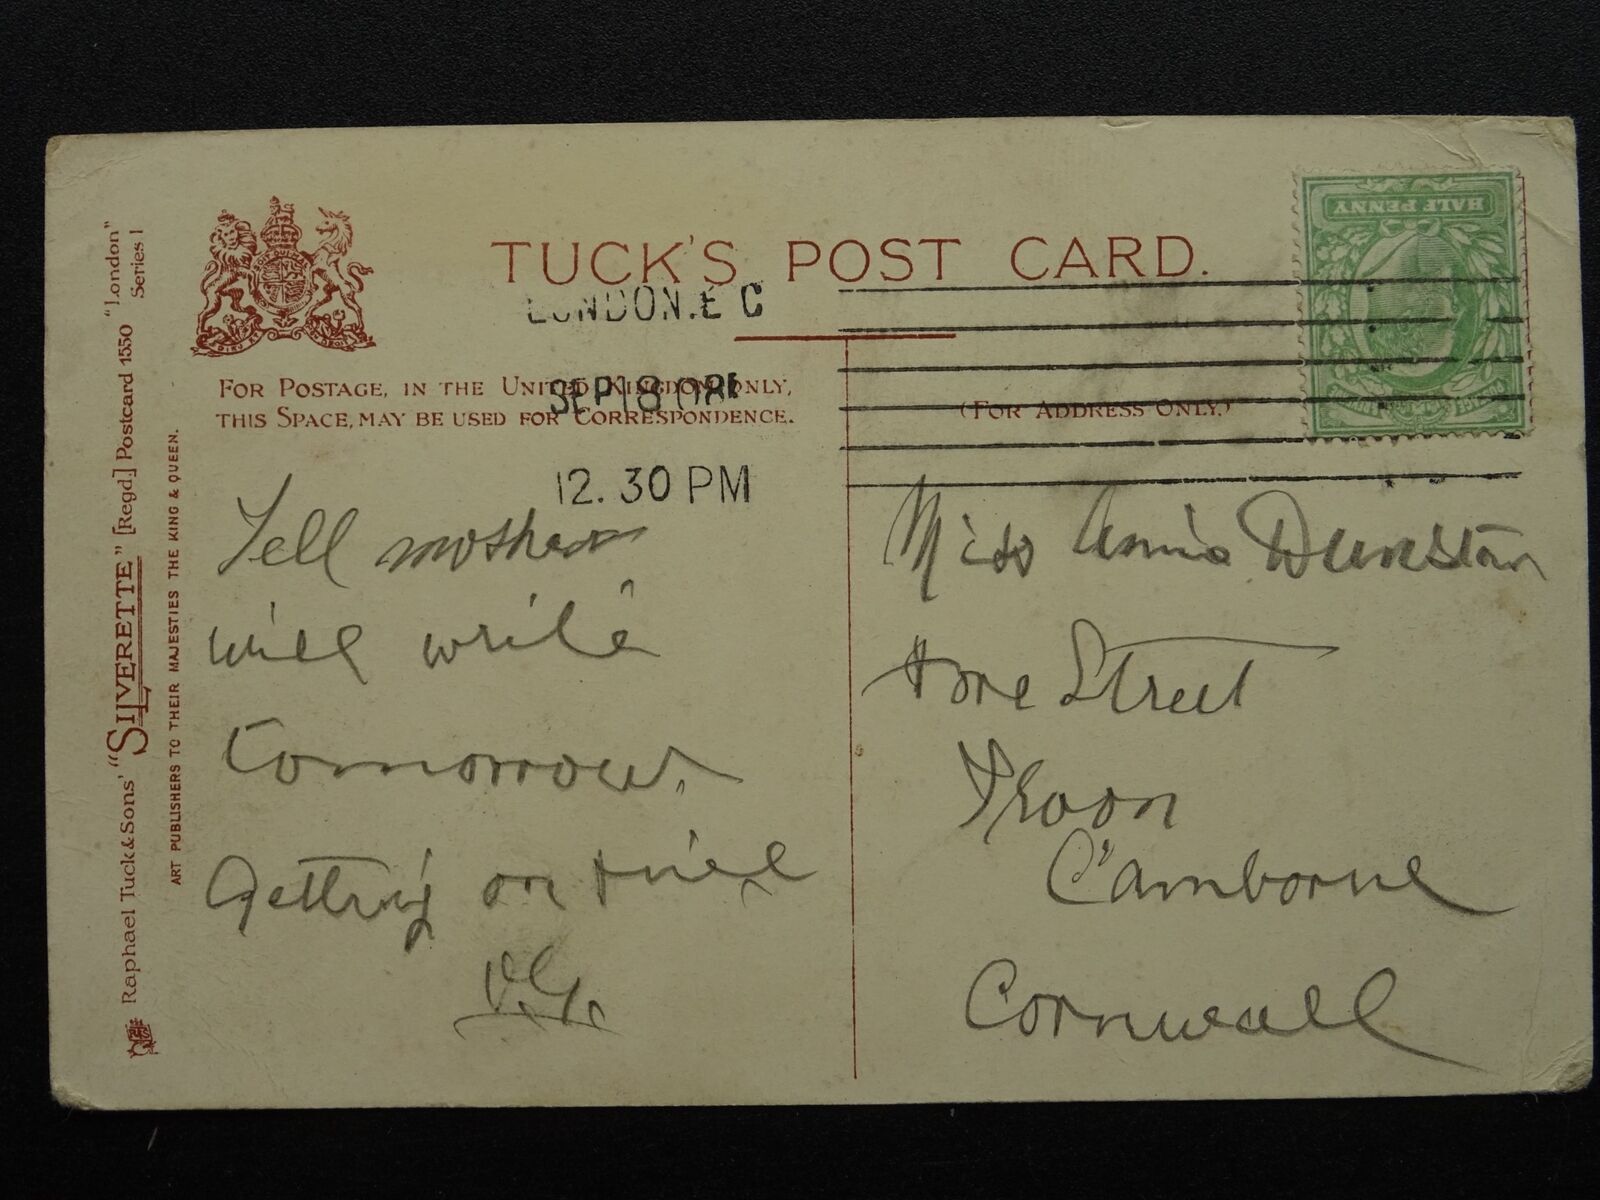 TUCK'S POST CARD.
LONDON.E C
SEP 18 08
12. 30 PM
FOR POSTAGE, IN THE UNITED KINGDOM ONLY,
THIS SPACE, MAY BE USED FOR CORRESPONDENCE.
(FOR ADDRESS ONLY.)
HALF PENNY
Raphael Tuck & Sons' "SILVERETTE" [Regd.] Postcard 1550 "London"
Series I
ART PUBLISHERS TO THEIR MAJESTIES THE KING & QUEEN.
Tell mother
will write
tomorrow.
Getting on
V.G.
Miss Annie Dunstan
Fore Street
Troon
Camborne
Cornwall